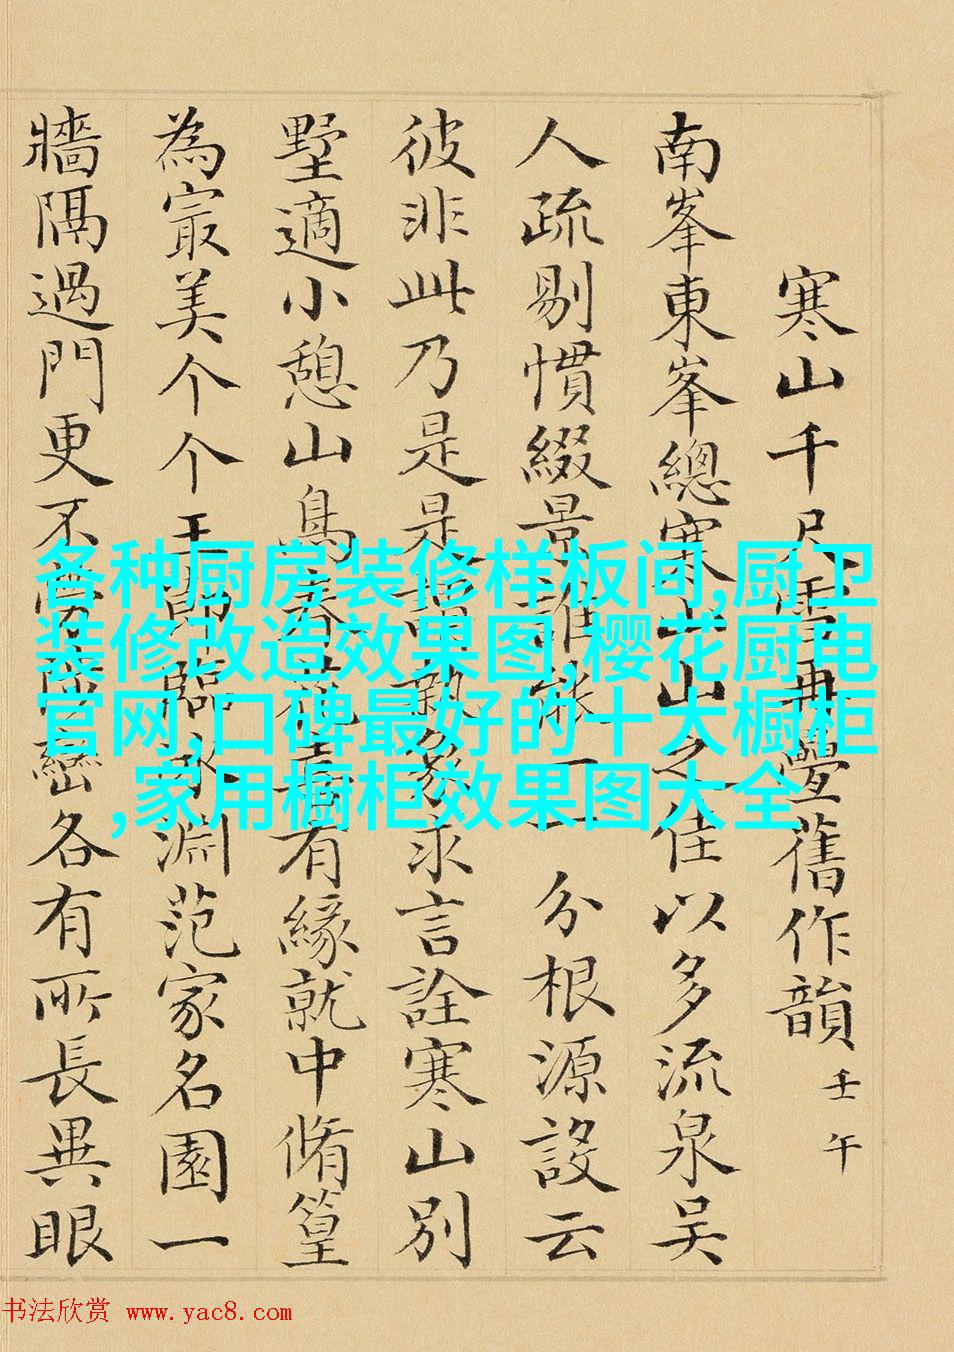 寒山千尺雪再疊舊作韻 壬午
南峯東峯總寒山山之佳以多流泉吳
人疏剔慣綴景誰能一一分根源設云
彼非此乃是是孰象求言詮寒山別
墅適小憩山鳥春花有緣就中脩篁
為最美个个玉臨淵范家名園一
牆隔過門更不巒各有所長異眼
各种厨房装修样板间,厨卫
装修改造效果图,樱花厨电
官网,口碑最好的十大橱柜
,家用橱柜效果图大全
书法欣赏 www.yac8.com